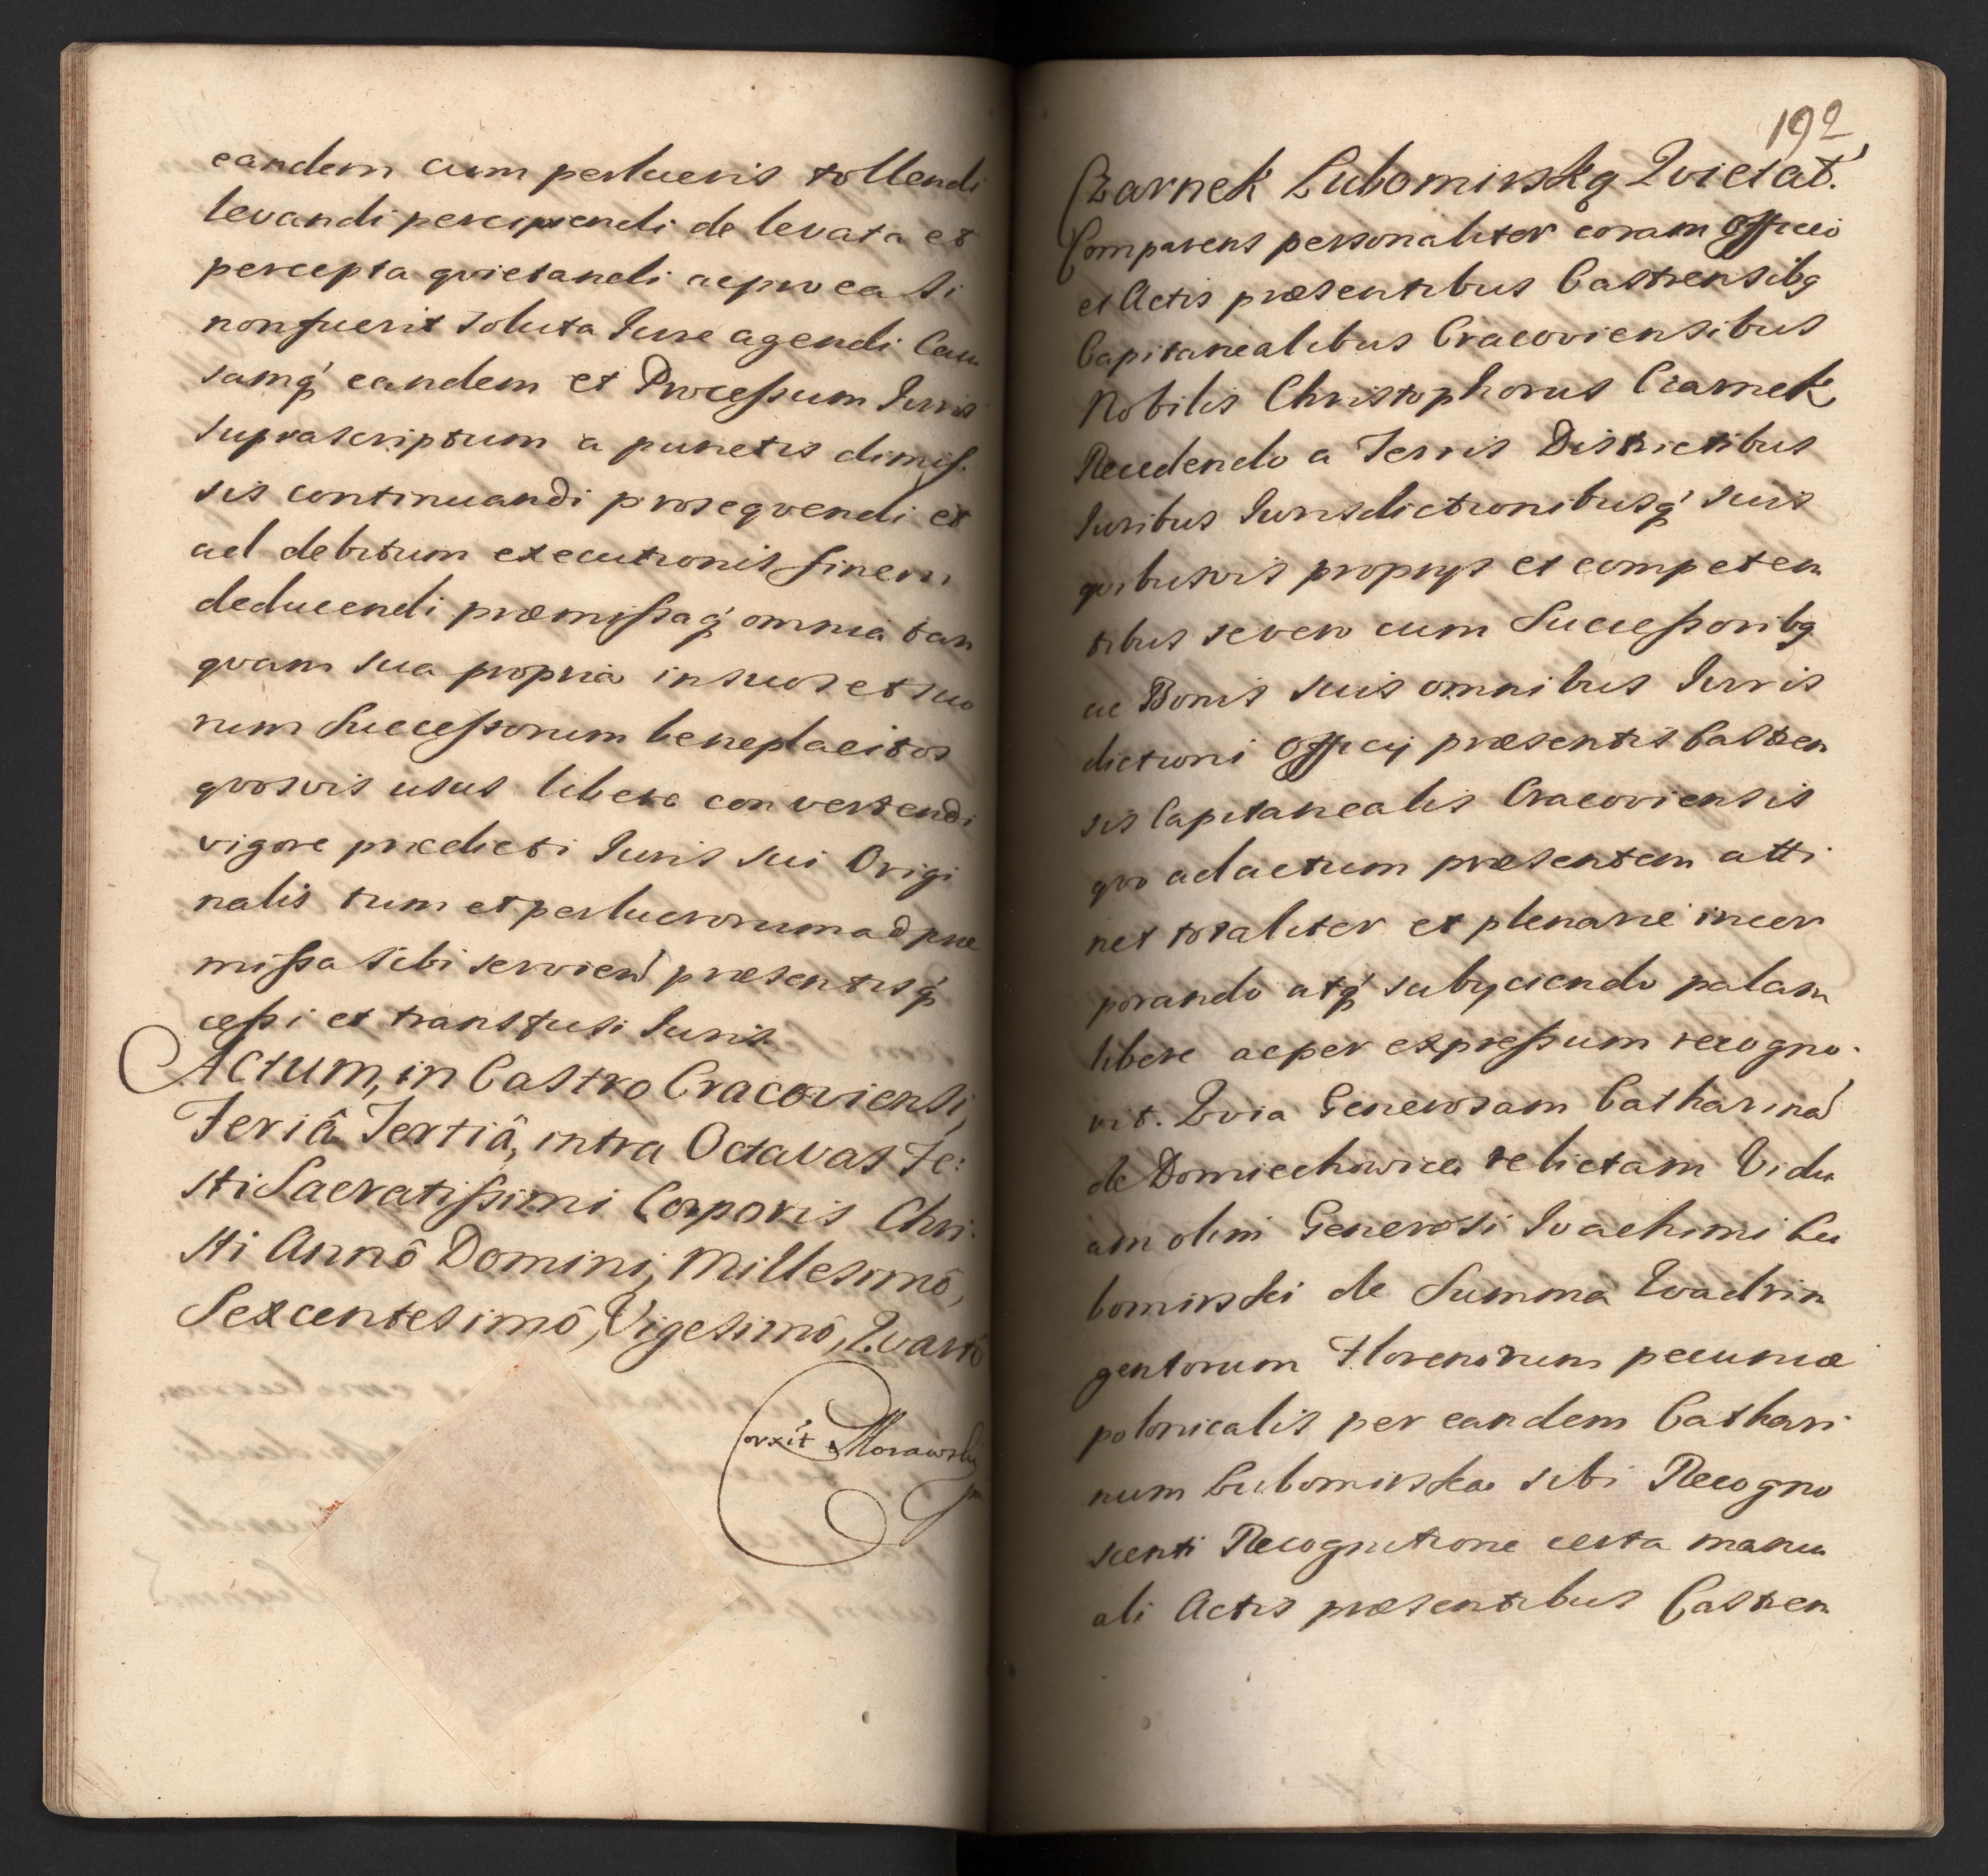 eandem cum perlucris tollendi
levandi percipiendi de levata et
percepta qvietandi ac pro ea si
non fuerit soluta Jure agendi Cau
samq́ eandem et Processum Juris
suprascriptum a punctis dimis
sis continuandi proseqvendi et
ad debitum executionis finem
deducendi præmissaq́ omnia tan
qvam sua propria in suos et suo
rum Successorum beneplacitos
qvosvis usus libere convertendi
vigore prædicti Juris sui Origi
nalis tum et perlucrorum ad præ
missa sibi servien præsentisq́
cessi et transfusi Juris
Actum, in Castro Cracoviensi,
Feriâ Tertiâ, intra Octavas Fe:
sti Sacratissimi Corporis Chri
sti Annô Domini, Millesimô,
Sexcentesimô, Vigesimô, Qvartô
Corxit Morawsky
192
Czarnek Lubomirską Qvietat.
Comparens personaliter coram Officio
et Actis præsentibus Castrensibq
Capitanealibus Cracoviensibus
Nobilis Christophorus Czarnek
Recedendo a Terris Districtibus
Juribus Jurisdictionibusq́ suis
qvibusvis propriis et competen
tibus severo cum Successoribq
ac Bonis suis omnibus Juris
dictioni Officij præsentis Castren
sis Capitanealis Cracoviensis
qvo ad actum præsentem atti
net totaliter et plenarie incor
porando atq́ subijciendo palam
libere ac per expressum recogno
vit. Qvia Generosam Catharina
de Domiechowice relictam Vidu
am olim Generosi Joachimi Lu
bomirski de Summa Qvadrin
gentorum Florenorum pecuniæ
polonicalis per eandem Cathari
num Lubomirska sibi Recogno
scenti Recognitione certa manu
ali Actis præsentibus Castren